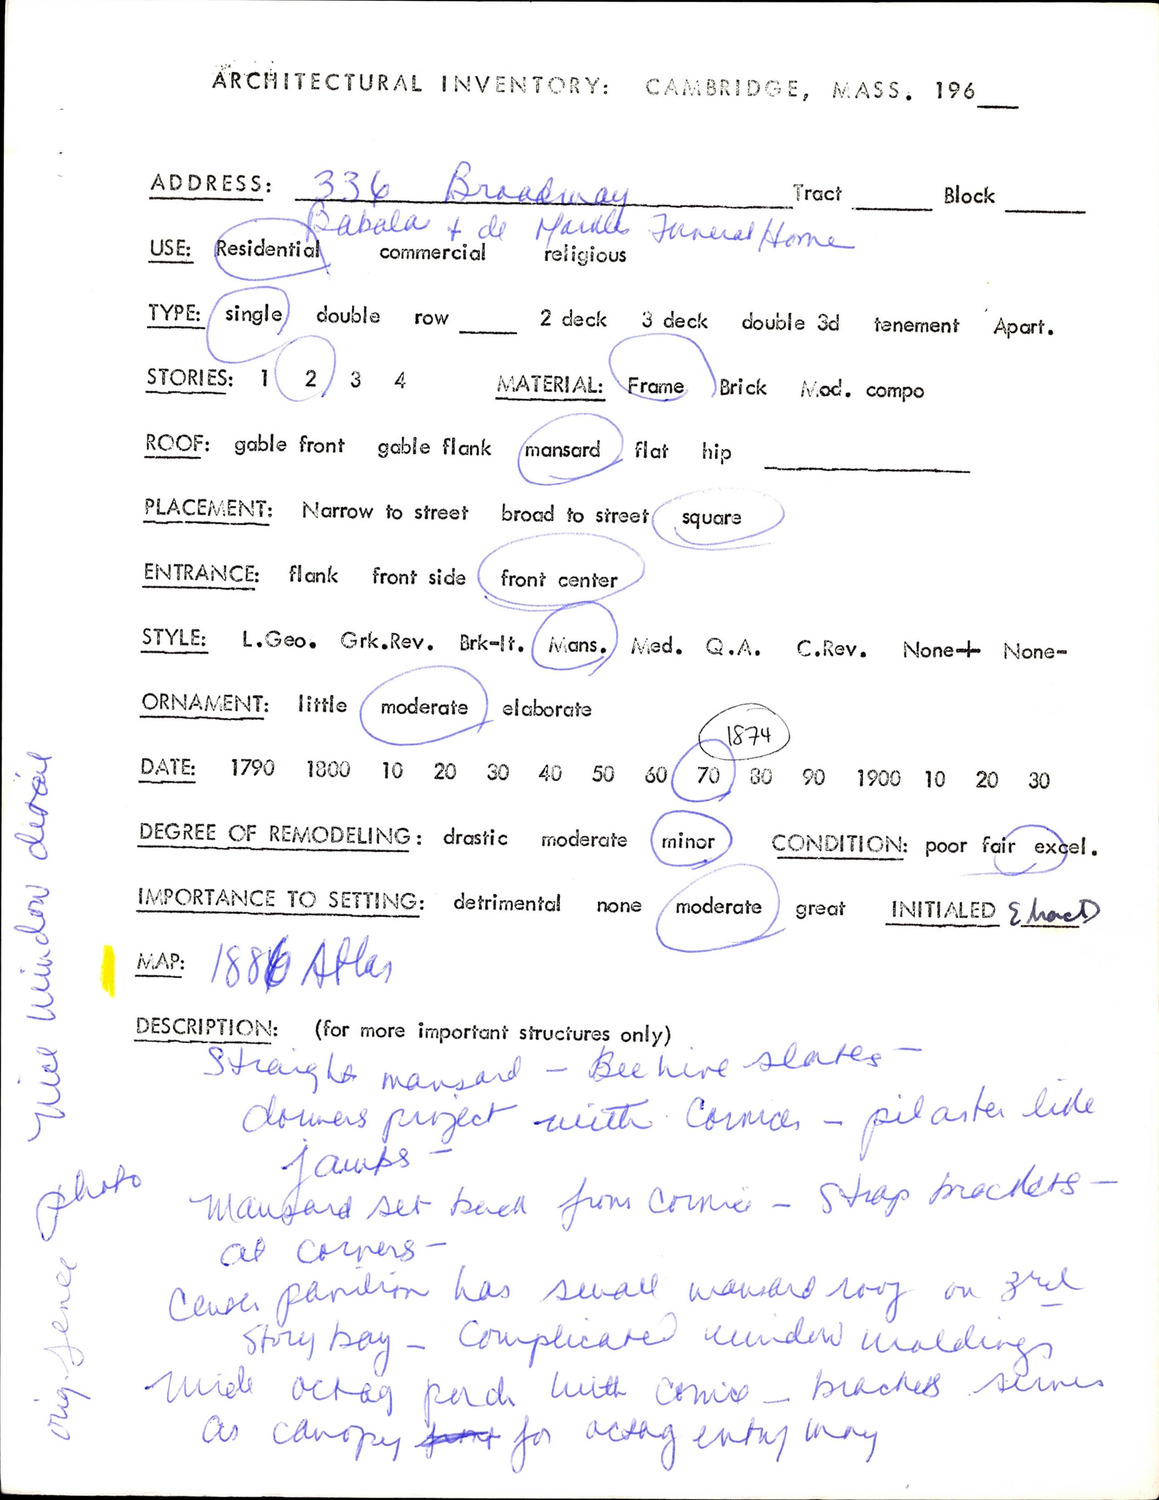 ARCHITECTURAL INVENTORY: CAMBRIDGE, MASS. 196__
ADDRESS: 336 Broadway Tract ____ Block ____
+ de Funeral Home
USE: Residential commercial religious
TYPE: single double row ____ 2 deck 3 deck double 3d tenement Apart.
STORIES: 1 2 3 4 MATERIAL: Frame Brick Mod. compo
ROOF: gable front gable flank mansard flat hip ____
PLACEMENT: Narrow to street broad to street square
ENTRANCE: flank front side front center
STYLE: L.Geo. Grk.Rev. Brk-It. Mans. Med. Q.A. C.Rev. None+ None-
ORNAMENT: little moderate elaborate
1874
DATE: 1790 1800 10 20 30 40 50 60 70 80 90 1900 10 20 30
DEGREE OF REMODELING: drastic moderate minor CONDITION: poor fair excel.
IMPORTANCE TO SETTING: detrimental none moderate great INITIALED
MAP: 1886 Atlas
DESCRIPTION: (for more important structures only)
Straight mansard - Beehive slates -
dormers project with cornices - pilaster like
jambs -
Mansard set back from cornice - strap brackets -
at corners -
Center pavilion has small mansard roof on 3rd
story bay - Complicated window moldings
Wide octag porch with cornice - brackets serves
as canopy for octag entry way
Nice window detail
orig. fence photo